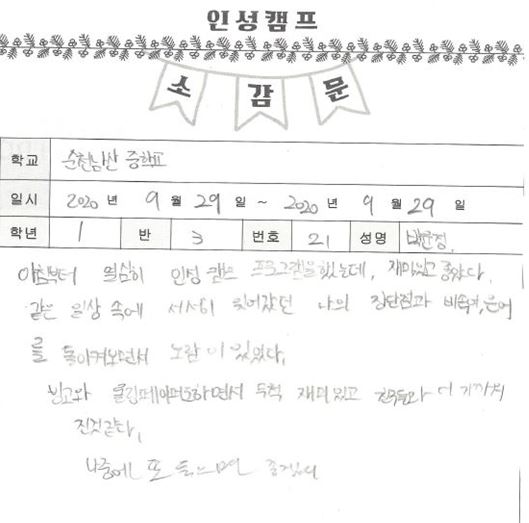 인성캠프
소감문
학교 순천남산 중학교
일시 2020 년 9 월 29 일 ~ 2020 년 9 월 29 일
학년 1 반 3 번호 21 성명
아침부터 열심히 인성 캠프 프로그램을 했는데, 재미있고 좋았다.
같은 일상 속에 서서히 잊어갔던 나의 장단점과
를 돌아켜보면서 보람이 있었다.
빙고와 롤링페이퍼도하면서 무척 재미있고 친구들과 더 가까워
진것같다.
나중에 또 들으면 좋겠다